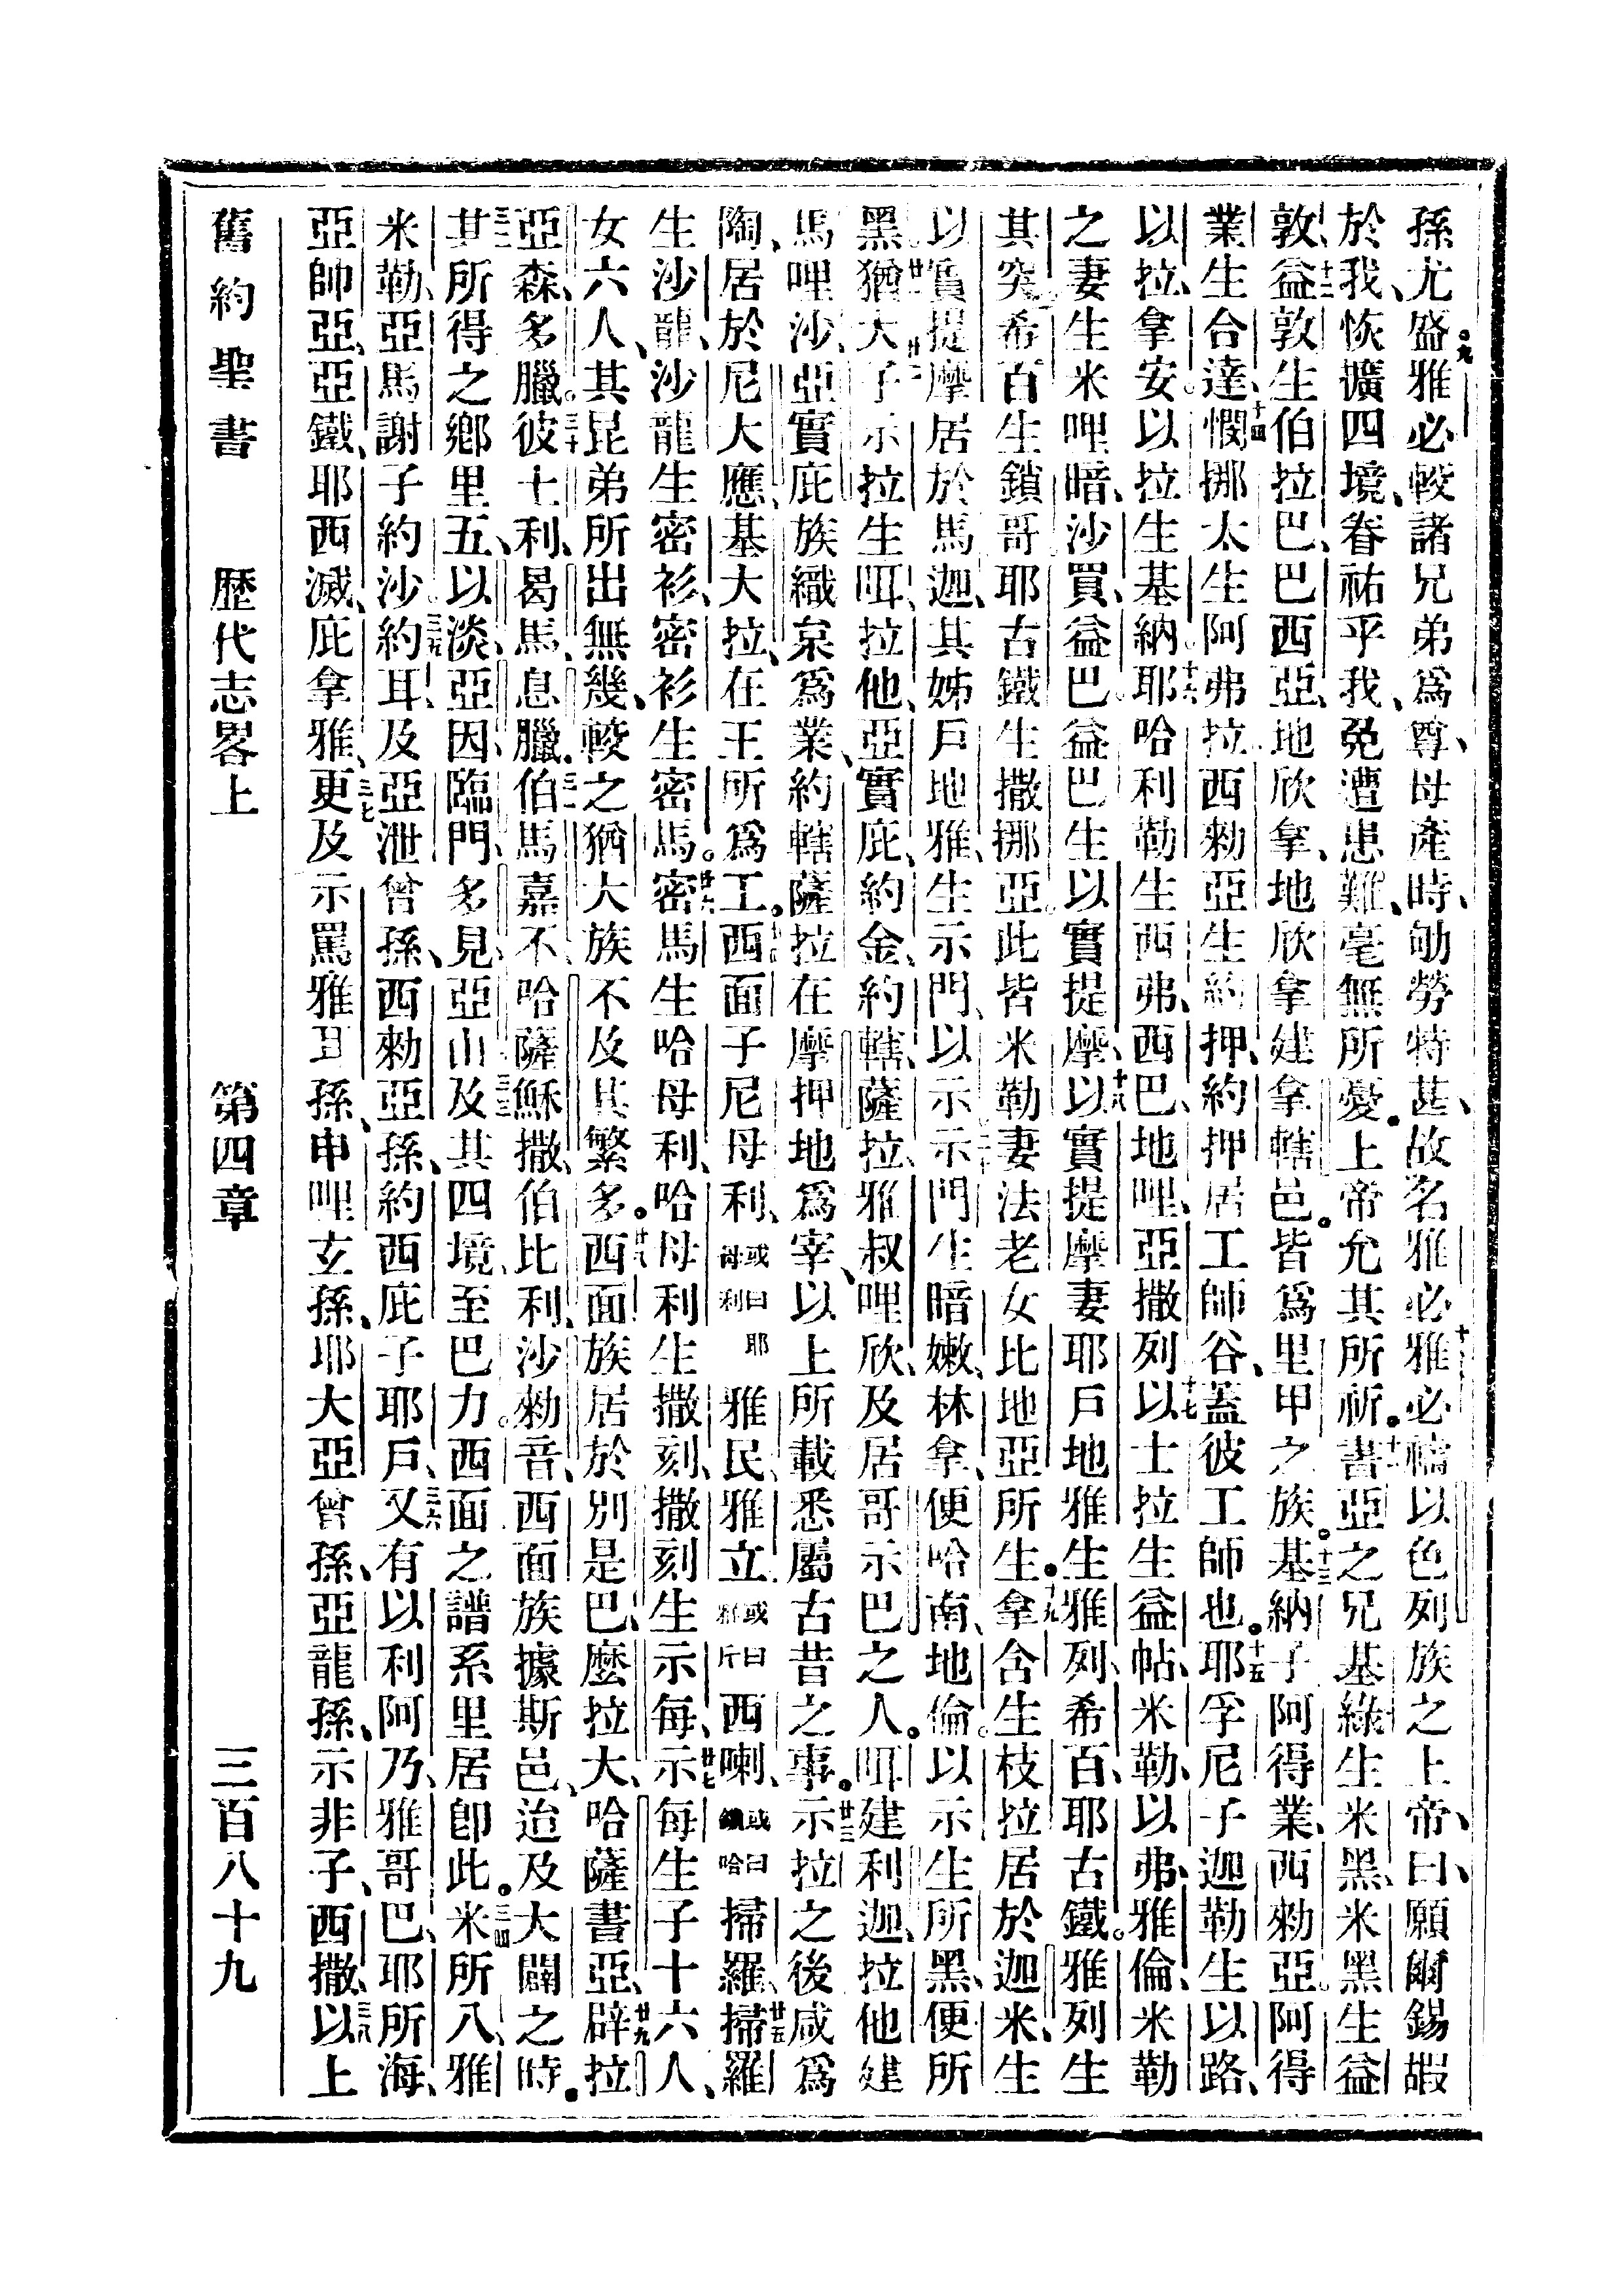 孫尤盛。九雅必較諸兄弟爲尊、母產時、劬勞特甚、故名雅必、十雅必禱以色列族之上帝、曰、願爾錫嘏
於我、恢擴四境、眷祐乎我、免遭患難、毫無所憂。上帝允其所祈。十一書亞之兄基綠生米黑、米黑生益
敦、十二益敦生伯拉巴、巴西亞、地欣拿、地欣拿建拿轄邑。皆爲里甲之族。十三基納子阿得業、西勑亞。阿得
業生合達、十四憫挪太生阿弗拉、西勑亞生約押、約押居工師谷、蓋彼工師也。十五耶孚尼子迦勒生以路、
以拉、拿安。以拉生基納。十六耶哈利勒生西弗、西巴、地哩、亞撒列、十七以士拉生益帖、米勒、以弗、雅倫、米勒
之妻生米哩暗、沙買、益巴、益巴生以實提摩、十八以實提摩妻耶戶地雅生雅列、希百、耶古鐵。雅列生
其突、希百生鎖哥、耶古鐵生撒挪亞。此皆米勒妻法老女比地亞所生。十九拿含生枝拉、居於迦米、生
以實提摩、居於馬迦、其姊戶地雅、生示門、二十以示示門生暗嫩、林拿、便哈南、地倫。以示生所黑、便所
黑。廿一猶大子示拉生咡、拉他、亞實庇、約金、約轄、薩拉、雅叔哩欣、及居哥示巴之人。咡建利迦、拉他建
馬哩沙、亞實庇族織枲爲業、約轄薩拉在摩押地爲宰、以上所載悉屬古昔之事。廿三示拉之後咸爲
陶、居於尼大應、基大拉、在王所爲工。廿四西面子尼母利、或曰耶母利雅民、雅立、或曰雅斤西喇、或曰鎖哈掃羅、廿五掃羅
生沙龍、沙龍生密衫、密衫生密馬。廿六密馬生哈母利、哈母利生撒刻、撒刻生示每、廿七示每生子十六人、
女六人、其昆弟所出無幾、較之猶大族不及其繁多。廿八西面族居於別是巴、麼拉大、哈薩書亞、廿九辟拉
亞森、多臘。三十彼土利、曷馬、息臘。三一伯馬嘉不、哈薩穌撒、伯比利、沙勑音、西面族據斯邑、迨及大闢之時。
三二其所得之鄉里五、以淡、亞因、臨門、多見、亞山、三三及其四境、至巴力。西面之譜系里居卽此。三四米所八、雅
米勒、亞馬謝子約沙。三五約耳、及亞泄曾孫、西勑亞孫、約西庇子耶戶、三六又有以利阿乃、雅哥巴、耶所海、
亞帥亞、亞鐵、耶西滅、庇拿雅、三七更及示罵雅耳孫、申哩玄孫、耶大亞曾孫、亞龍孫、示非子、西撒、三八以上
舊約聖書　歷代志畧上　第四章　三百八十九